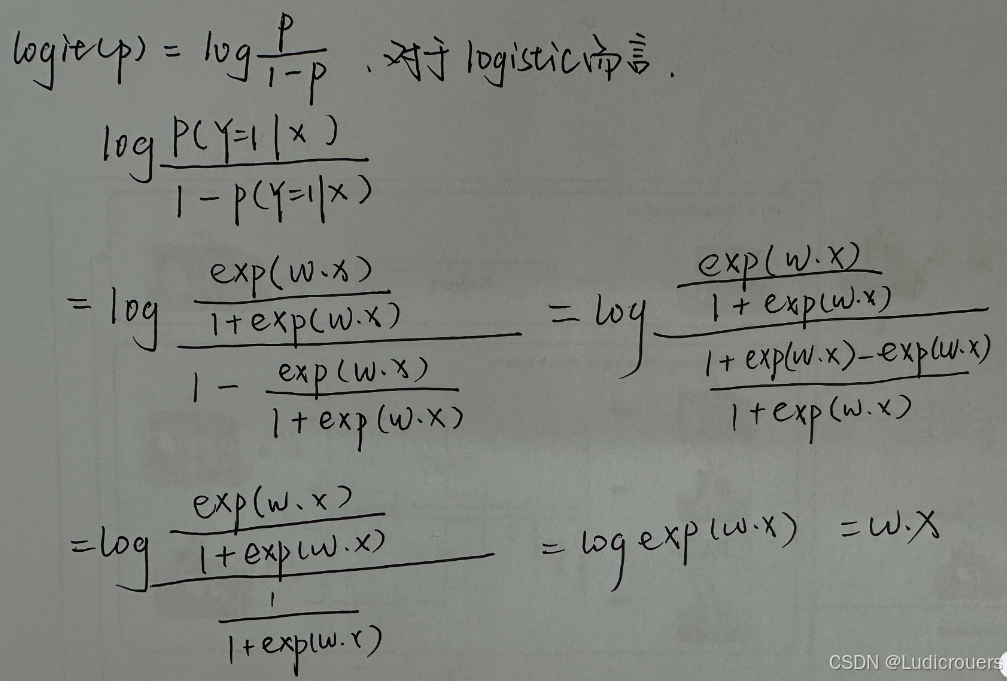 logit(p) = log p/(1-p) . 对于 logistic 而言 .
log P(Y=1|x)/(1-p(Y=1|x))
= log (exp(w.x)/(1+exp(w.x)))/(1-exp(w.x)/(1+exp(w.x))) = log (exp(w.x)/(1+exp(w.x)))/((1+exp(w.x)-exp(w.x))/(1+exp(w.x)))
= log (exp(w.x)/(1+exp(w.x)))/(1/(1+exp(w.x))) = log exp(w.x) = w.x
CSDN @Ludicrouers